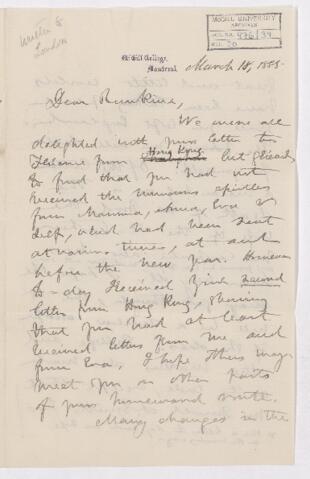 Written to
London
McGILL UNIVERSITY
ARCHIVES
ACC. NO. 476/34
REF. 20
McGill College,
Montreal.
March 18, 1885
Dear Rankine,
We were all
delighted with your letter to
from Hong Kong, but
to find that you had not
received the numerous epistles
from Mamma, Anna, Eva &
self, which had been sent
at various times, at and
before the new year. However
to-day received your second
letter from Hong Kong, showing
that you had at least
received letters from me and
from Eva. I hope others may
meet you in other parts
of your homeward route.
Many changes in the